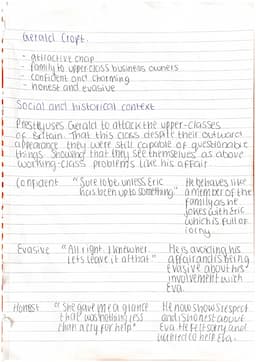 Gerald Croft.
- attractive chap
- family to upper-class business owners
- confident and charming
- honest and evasive
Social and historical context
Priestley uses Gerald to attack the upper-classes
of Britain. That this class despite their outward
appearance they were still capable of questionable
things. Showing that they see themselves as above
working-class problems like his affair
Confident "Sure to be. unless Eric has been up to something" He behaves like a member of the family as he jokes with Eric which is full of irony
Evasive "All right. I knew her. Lets leave it at that" He is avoiding his affair and is being evasive about his involvement with Eva.
Honest "She gave me a glance that was nothing less than a cry for help" He now shows respect and is honest about Eva. He felt sorry and wanted to help Eva.